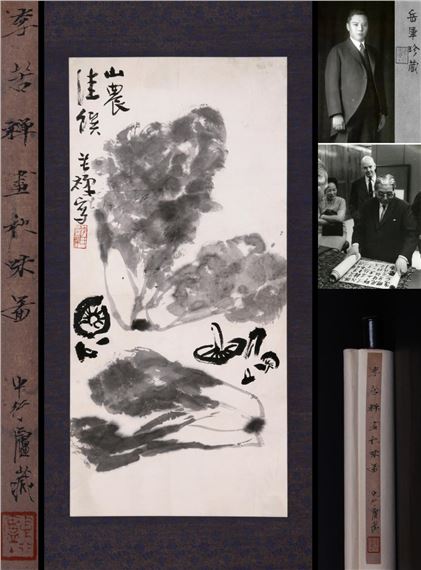 李苦禪畫秋味圖
中行廬藏
山農
佳饌
苦禪寫
岳軍珍藏
李苦禪畫秋味圖
中行廬藏